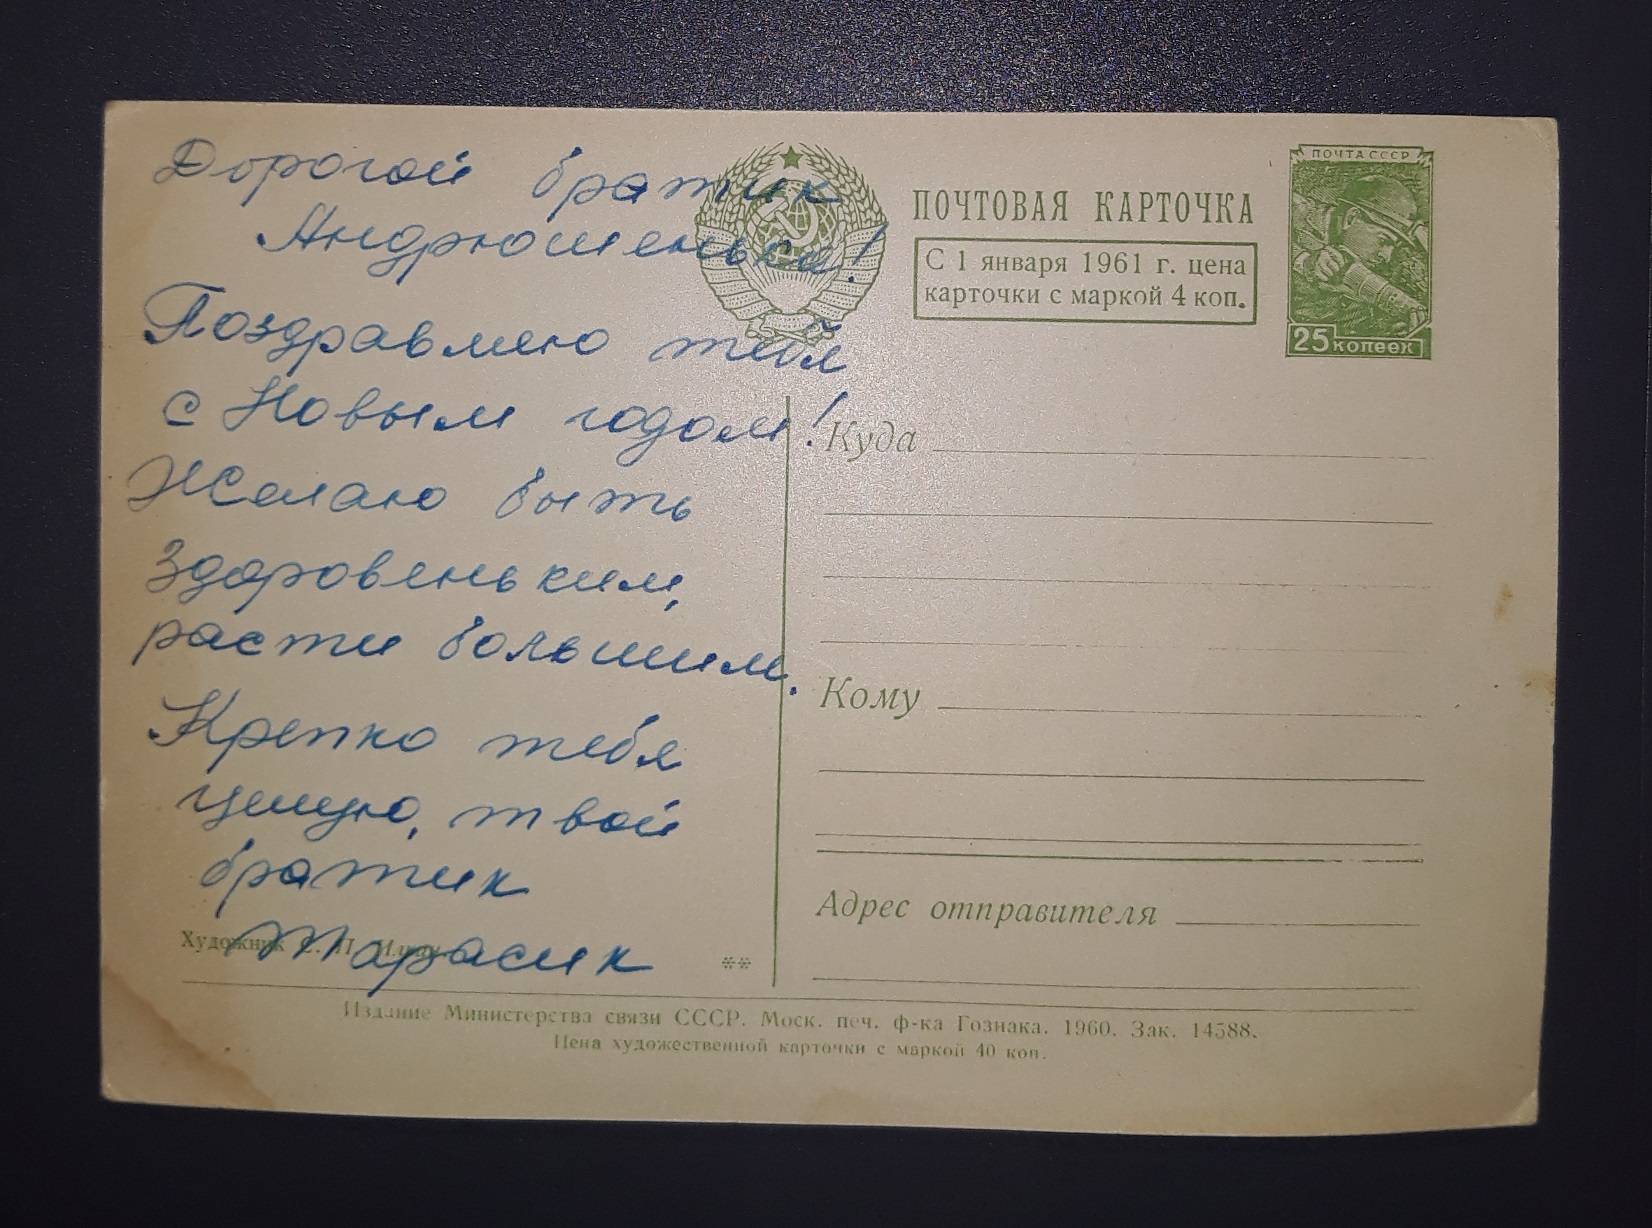 Дорогой братик
Андрюшенька!
Поздравляю тебя
с Новым годом!
Желаю быть
здоровеньким,
расти большим.
Крепко тебя
целую, твой
братик
Тарасик
Художник С. П.
**
ПОЧТОВАЯ КАРТОЧКА
С 1 января 1961 г. цена
карточки с маркой 4 коп.
ПОЧТА СССР
25 копеек
Куда
Кому
Адрес отправителя
Издание Министерства связи СССР. Моск. печ. ф-ка Гознака. 1960. Зак. 14588.
Цена художественной карточки с маркой 40 коп.